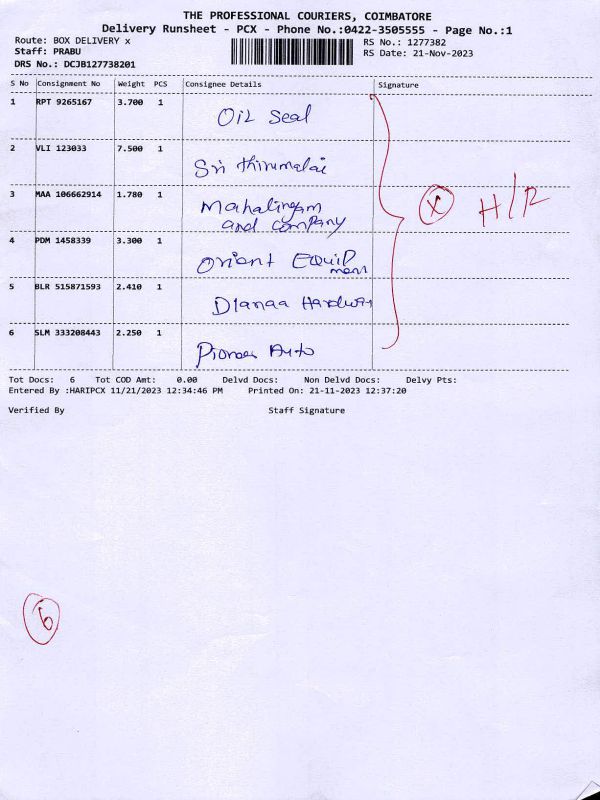 THE PROFESSIONAL COURIERS, COIMBATORE
Delivery Runsheet - PCX - Phone No.:0422-3505555 - Page No.:1
Route: BOX DELIVERY x
RS No.: 1277382
Staff: PRABU
RS Date: 21-Nov-2023
DRS No.: DCJB127738201
S No Consignment No Weight PCS Consignee Details Signature
1 RPT 9265167 3.700 1 Oil Seal
2 VLI 123033 7.500 1 Sri Thirumalai
3 MAA 106662914 1.780 1 Mahalingam
and company
4 PDM 1458339 3.300 1 Orient Equip
ment
5 BLR 515871593 2.410 1 Dianaa Hardwar
6 SLM 333208443 2.250 1 Pioneer Auto
X H/R
Tot Docs: 6 Tot COD Amt: 0.00 Delvd Docs: Non Delvd Docs: Delvy Pts:
Entered By :HARIPCX 11/21/2023 12:34:46 PM Printed On: 21-11-2023 12:37:20
Verified By Staff Signature
6